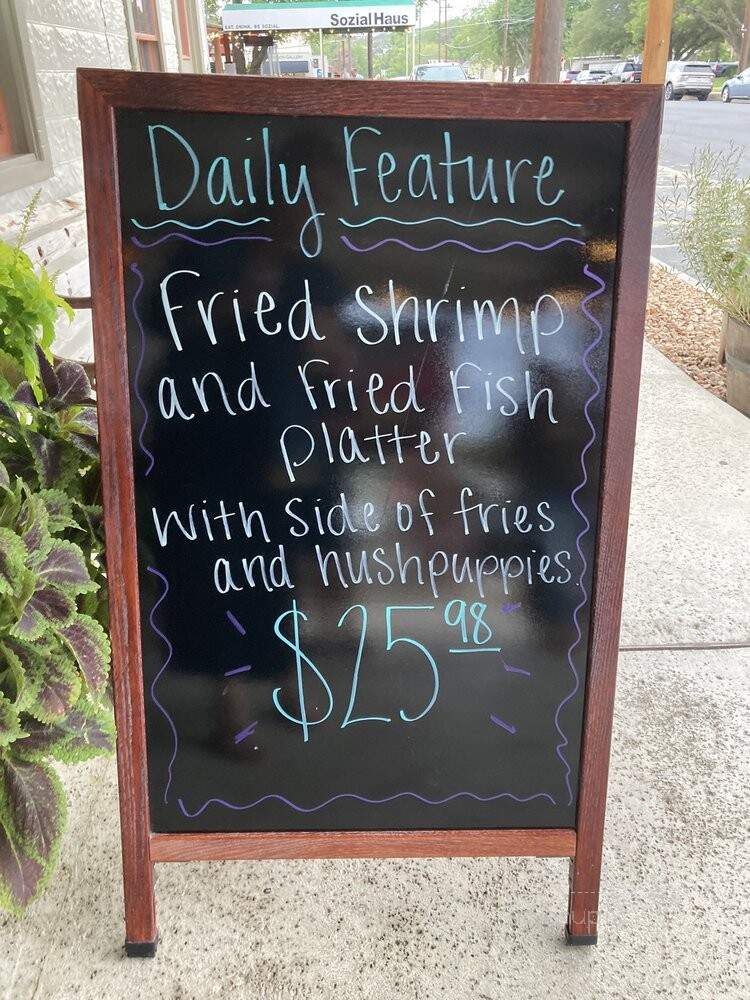 EAT. DRINK. BE SOZIAL.
Sozial Haus
Daily Feature
Fried Shrimp
and Fried Fish
platter
with side of fries
and hushpuppies.
$25 98